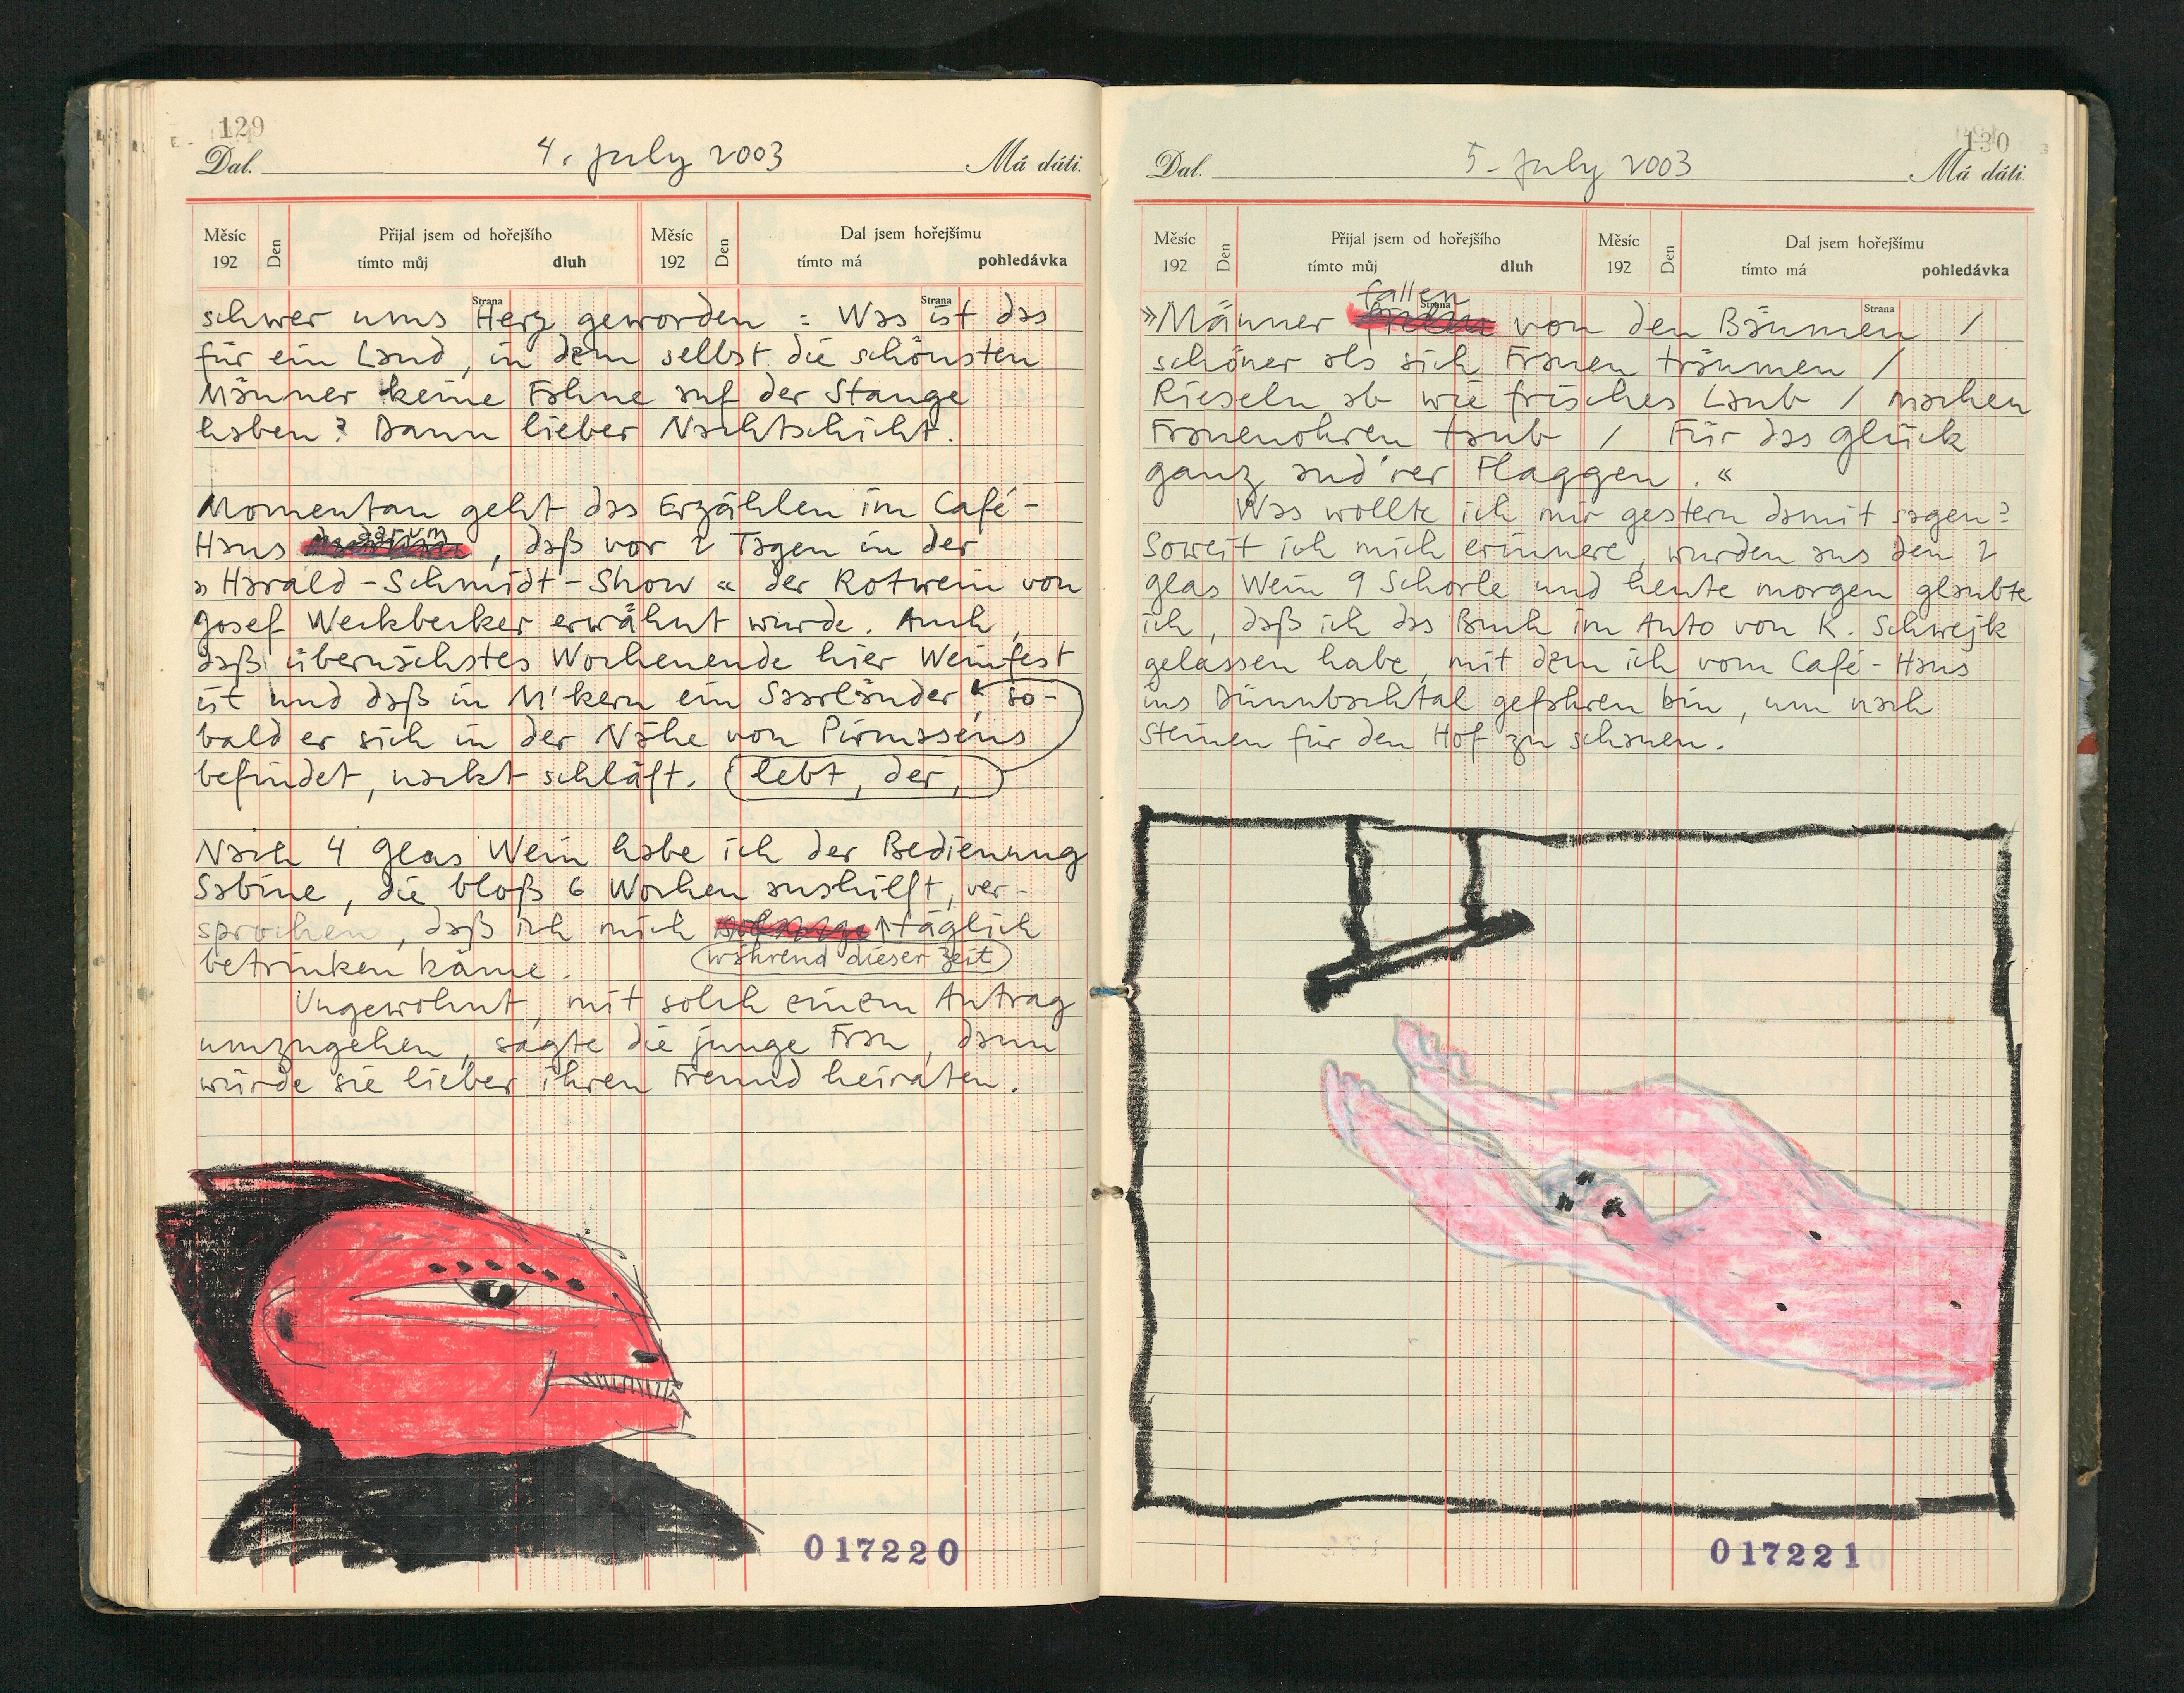 129
Dal. 4. july 2003 Má dáti.
Měsíc 192 Den Přijal jsem od hořejšího tímto můj dluh Měsíc 192 Den Dal jsem hořejšímu tímto má pohledávka
Strana Strana
schwer ums Herz geworden : Was ist das
für ein Land, in dem selbst die schönsten
Männer keine Fahne auf der Stange
haben? Dann lieber Nachtschicht.
Momentan geht das Erzählen im Café-
darum
Haus , daß vor 2 Tagen in der
»Harald-Schmidt-Show« der Rotwein von
Josef Weckbecker erwähnt wurde. Auch,
daß übernächstes Wochenende hier Weinfest
ist und daß in M'kern ein Saarländer, so-
bald er sich in der Nähe von Pirmasens
befindet, nackt schläft. lebt, der,
Nach 4 Glas Wein habe ich der Bedienung
Sabine, die bloß 6 Wochen aushilft, ver-
sprochen, daß ich mich täglich
betrinken käme. während dieser Zeit
Ungewohnt, mit solch einem Antrag
umzugehen, sagte die junge Frau, dann
würde sie lieber ihren Freund heiraten.
017220
130
Dal. 5. july 2003 Má dáti.
Měsíc 192 Den Přijal jsem od hořejšího tímto můj dluh Měsíc 192 Den Dal jsem hořejšímu tímto má pohledávka
Strana Strana
fallen
»Männer von den Bäumen /
schöner als sich Frauen träumen /
Rieseln ab wie frisches Laub / machen
Frauenohren taub / Für das Glück
ganz and'rer Flaggen.«
Was wollte ich mir gestern damit sagen?
Soweit ich mich erinnere, wurden aus den 2
Glas Wein 9 Schorle und heute morgen glaubte
ich, daß ich das Buch im Auto von K. Schwejk
gelassen habe, mit dem ich vom Café-Haus
ins Dünnbachtal gefahren bin, um nach
Steinen für den Hof zu schauen.
017221